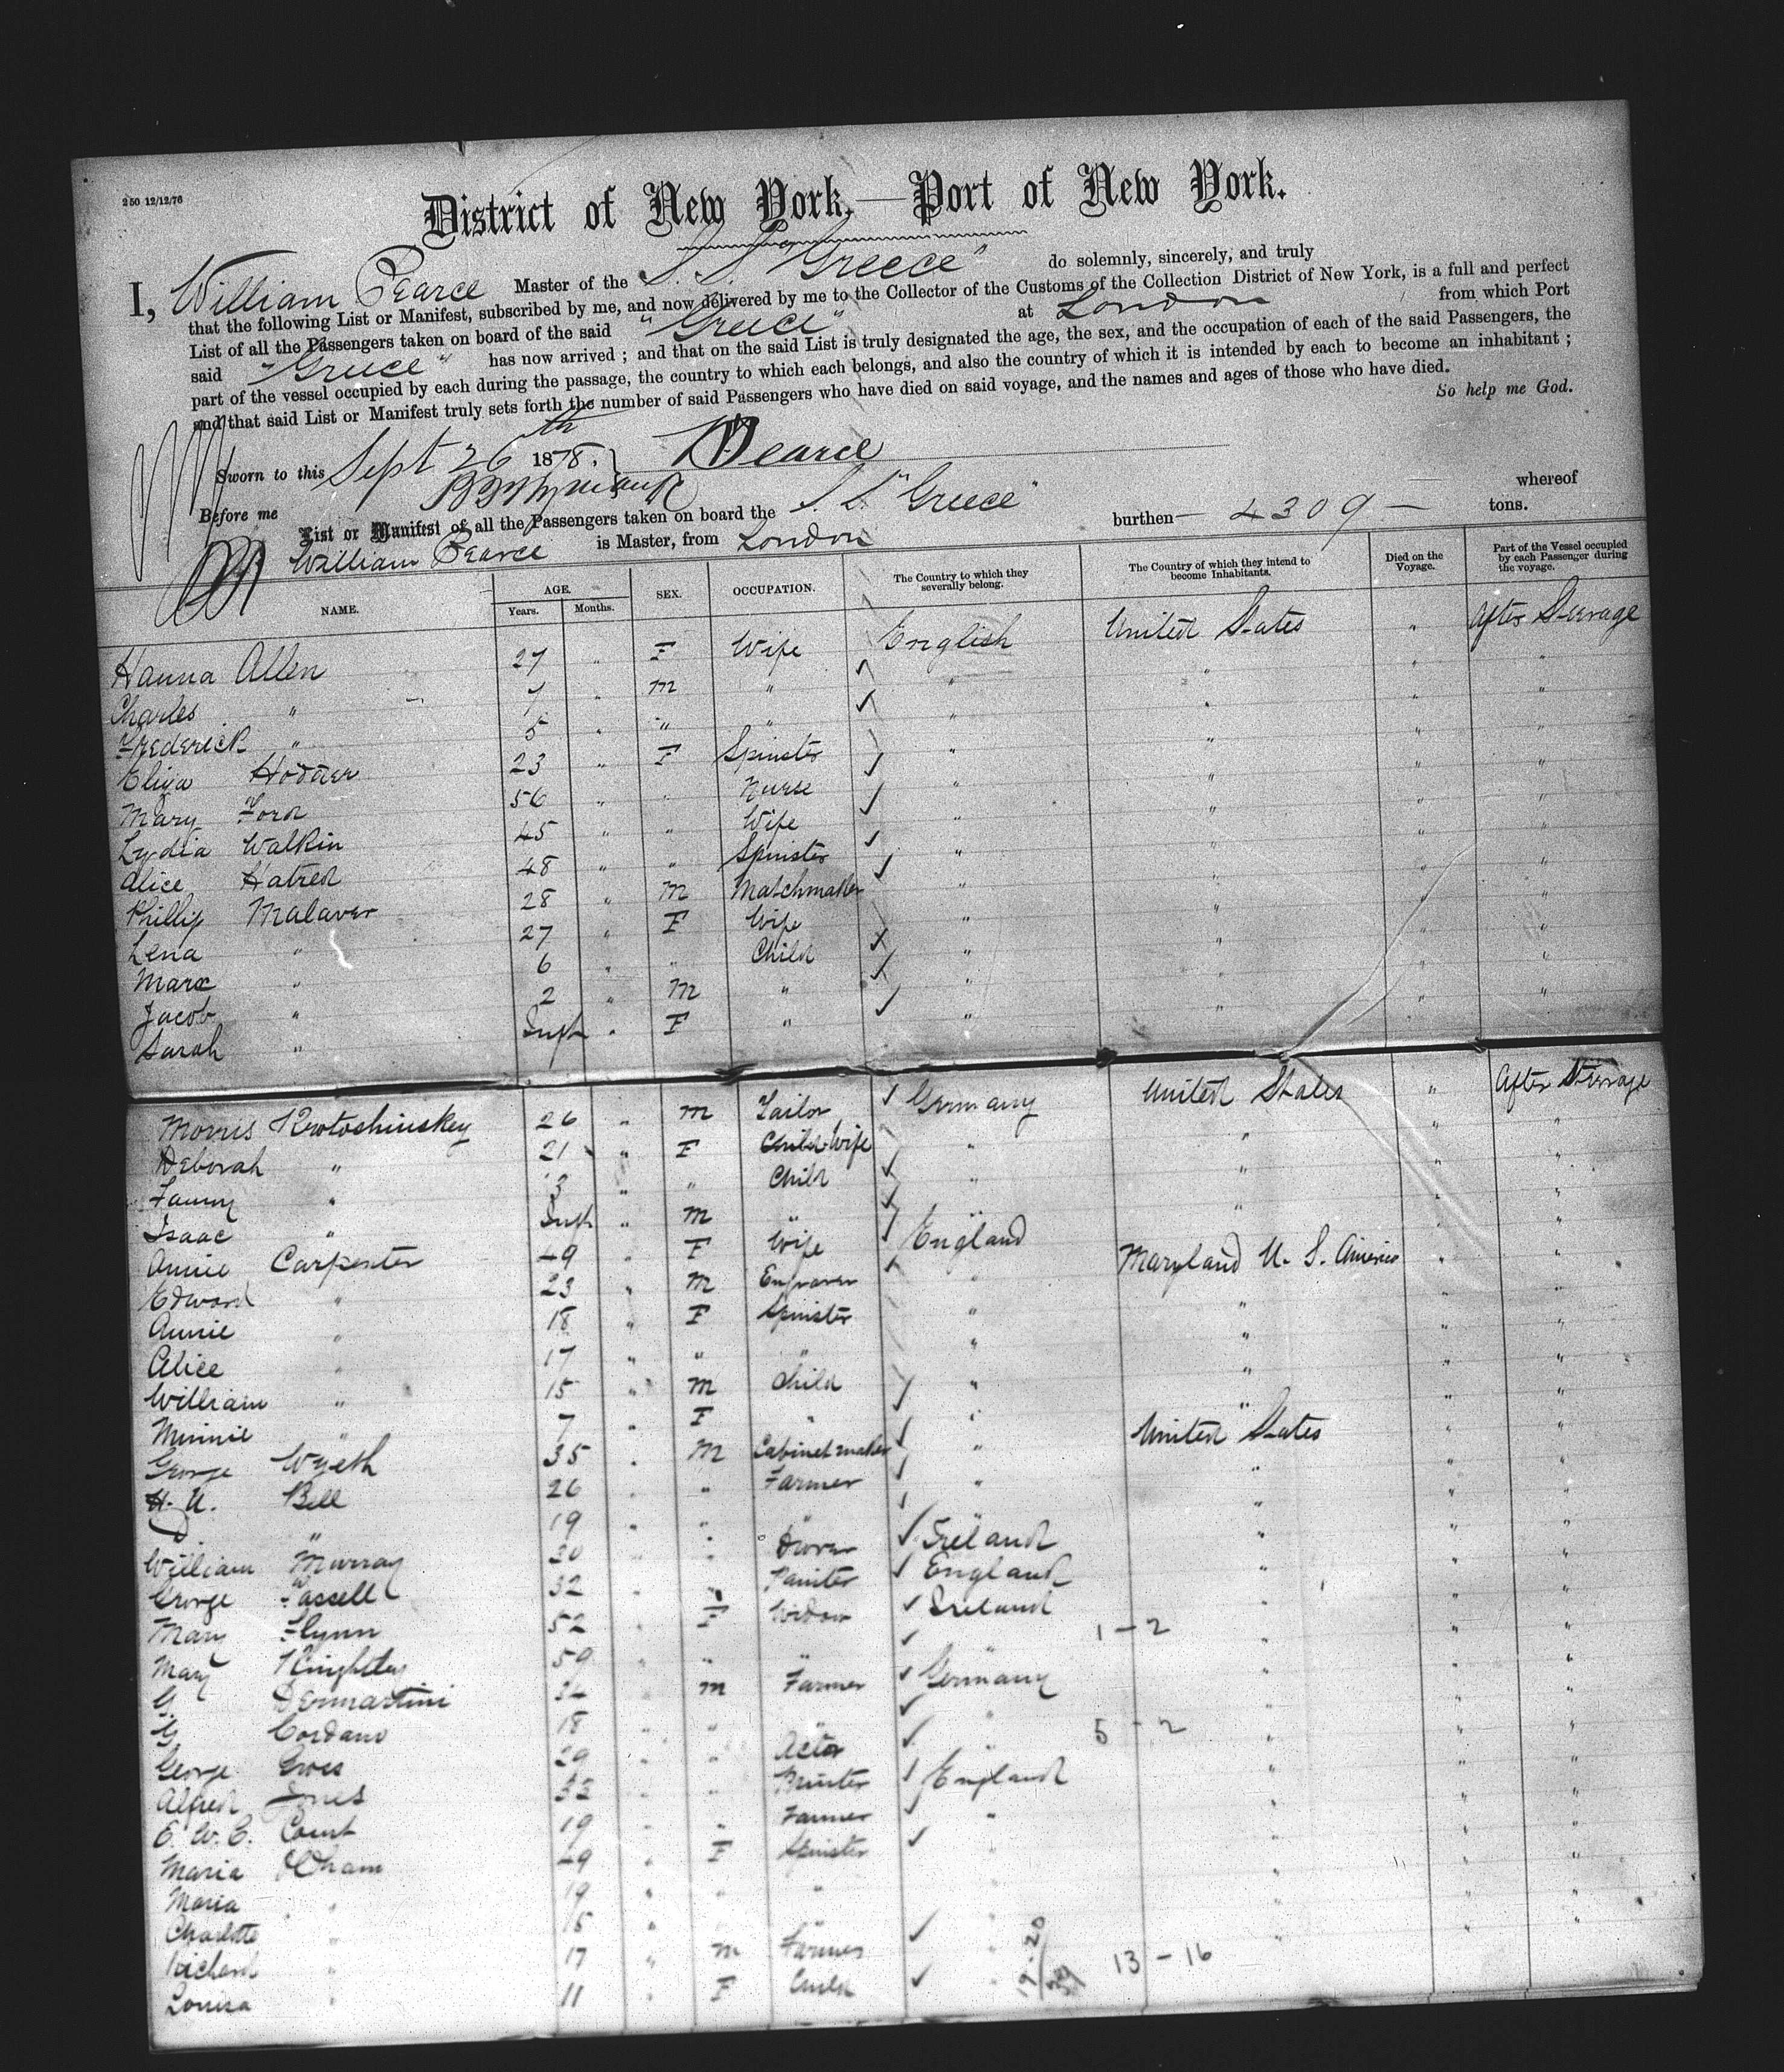 250 12/12/76
District of New York,—Port of New York.
I, William Pearce Master of the S. S. "Greece" do solemnly, sincerely, and truly
that the following List or Manifest, subscribed by me, and now delivered by me to the Collector of the Customs of the Collection District of New York, is a full and perfect
List of all the Passengers taken on board of the said "Greece" at London from which Port
said "Greece" has now arrived ; and that on the said List is truly designated the age, the sex, and the occupation of each of the said Passengers, the
part of the vessel occupied by each during the passage, the country to which each belongs, and also the country of which it is intended by each to become an inhabitant ;
and that said List or Manifest truly sets forth the number of said Passengers who have died on said voyage, and the names and ages of those who have died.
So help me God.
Sworn to this Sept 26th 1878. WPearce
Before me
List or Manifest of all the Passengers taken on board the S. S. "Greece" whereof
William Pearce is Master, from London burthen — 4309 — tons.
NAME. AGE. Years. Months. SEX. OCCUPATION. The Country to which they severally belong. The Country of which they intend to become Inhabitants. Died on the Voyage. Part of the Vessel occupied by each Passenger during the voyage.
Hanna Allen 27 " F Wife English United States " After Steerage
Charles " 7 " M " " " " "
Frederick " 5 " " " " " " "
Eliza 23 " F Spinster " " " "
Mary Ford 56 " " Nurse " " " "
Lydia Walkin 45 " " Wife " " " "
Alice Hatred 48 " " Spinster " " " "
Phillip Malaver 28 " M Matchmaker " " " "
Lena " 27 " F Wife " " " "
Marx " 6 " " Child " " " "
Jacob " 2 " M " " " " "
Sarah " Inft " F " " " " "
Morris Krotoshinskey 26 " M Tailor Germany United States " After Steerage
Deborah " 21 " F Wife " " " "
Fanny " 3 " " Child " " " "
Isaac " Inft " M " " " " "
Annie Carpenter 49 " F Wife England Maryland U. S. America " "
Edward " 23 " M Engraver " " " "
Annie " 18 " F Spinster " " " "
Alice " 17 " " " " " " "
William " 15 " M Child " " " "
Minnie " 7 " F " " " " "
George Wyeth 35 " M Cabinet maker " United States " "
H. U. Bell 26 " " Farmer " " " "
" 19 " " " " " " "
William Murray 30 " " Drover Ireland " " "
George Fassell 32 " " Painter England " " "
Mary Flynn 52 " F Widow Ireland 1 – 2 " " "
Mary 59 " " " " " " "
G. Dermartini 34 " M Farmer Germany " " "
G. Cordano 18 " " " " 5 – 2 " " "
George Gross 29 " " Actor " " " "
Alfred Jones 33 " " Printer England " " "
E. W. C. Court 19 " " Farmer " " " "
Maria Oldham 49 " F Spinster " " " "
Maria " 19 " " " " " " "
Charlotte " 15 " " " " " " "
Richard " 17 " M Farmer " 13 – 16 " "
Louisa " 11 " F Child "